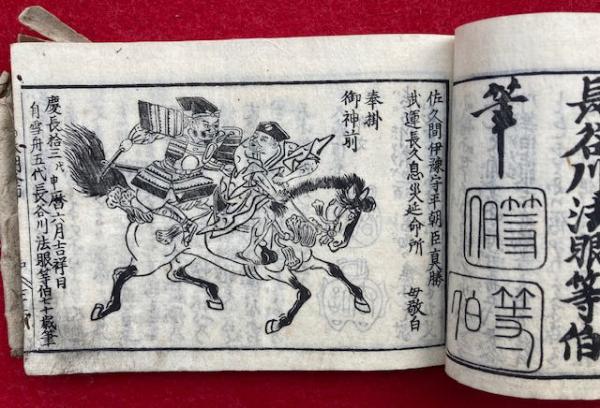 長谷川法眼等伯
筆
等伯
等伯
佐久間伊豫守平朝臣真勝
武運長久息災延命所 母敬白
奉掛
御神前
慶長拾三戊申暦六月吉祥日
自雪舟五代長谷川法眼等伯七十歳筆